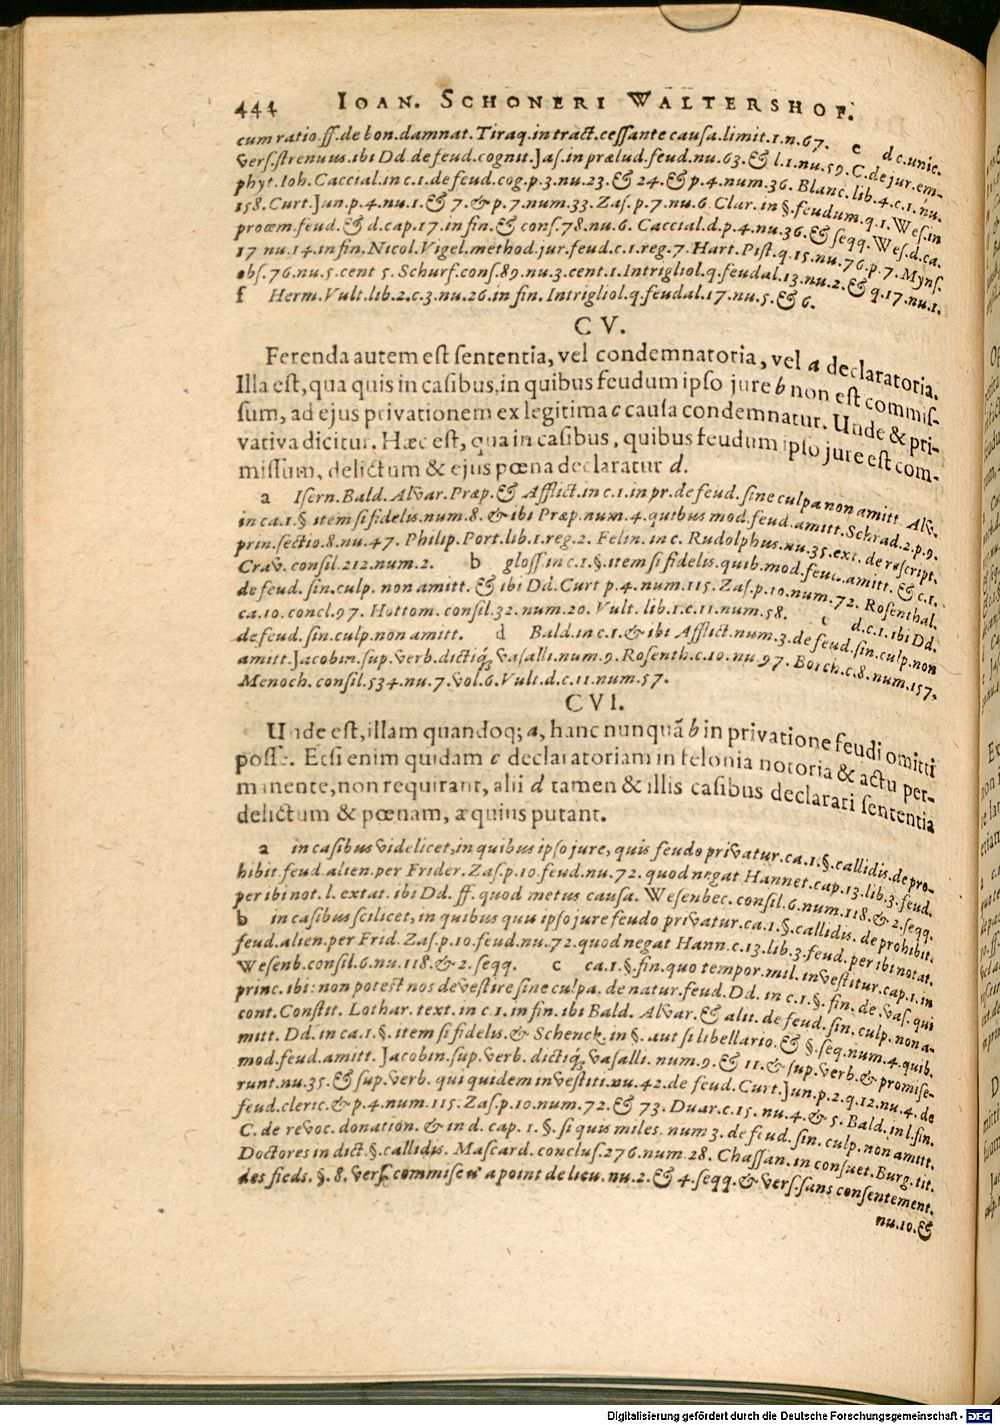 444 IOAN. SCHONERI WALTERSHOF.
cum ratio. ff. de bon. damnat. Tiraq. in tract. cessante causa. limit. 1. n. 67. e d c. unic.
vers. strenuus. ibi Dd. de feud. cognit. Jas. in prælud. feud. nu. 63. & l. 1. nu. 59. C. de jur. em-
phyt. Ioh. Caccial. in c. 1. de feud. cog. p. 3. nu. 23. & 24. & p. 4. num. 36. Blanc. lib. 4. c. 1. nu.
158. Curt. Jun. p. 4. nu. 1. & 7. & p. 7. num. 33. Zas. p. 7. nu. 6. Clar. in §. feudum. q. 1. Wes. in
proœm. feud. & d. cap. 17. in fin. & cons. 78. nu. 6. Caccial. d. p. 4. nu. 36. & seqq. Wes. d. ca.
17 nu. 14. in fin. Nicol. Vigel. method. jur. feud. c. 1. reg. 7. Hart. Pist. q. 15. nu. 76. p. 7. Myns.
obs. 76. nu. 5. cent 5. Schurf. cons. 89. nu. 3. cent. 1. Intrigliol. q. feudal. 13. nu. 2. & q. 17. nu. 1.
f Herm. Vult. lib. 2. c. 3. nu. 26. in fin. Intrigliol. q. feudal. 17. nu. 5. & 6.
CV.
Ferenda autem est sententia, vel condemnatoria, vel a declaratoria.
Illa est, qua quis in casibus, in quibus feudum ipso jure b non est commis-
sum, ad ejus privationem ex legitima c causa condemnatur. Unde & pri-
vativa dicitur. Hæc est, qua in casibus, quibus feudum ipso jure est com-
missum, delictum & ejus pœna declaratur d.
a Isern. Bald. Alvar. Præp. & Afflict. in c. 1. in pr. de feud. sine culpa non amitt Alv.
in ca. 1. § item si fidelis. num. 8. & ibi Præp. num. 4. quibus mod. feud. amitt. Schrad. 2. p. 9.
prin. sectio. 8. nu. 47. Philip. Port. lib. 1. reg. 2. Felin. in c. Rudolphus. nu. 35. ext. de rescript.
Crav. consil. 212. num. 2. b gloss. in c. 1. §. item si fidelis. quib. mod. feud. amitt. & c. 1.
de feud. sin. culp. non amitt. & ibi Dd. Curt p. 4. num. 115. Zas. p. 10. num. 72. Rosenthal.
ca. 10. concl. 97. Hottom. consil. 32. num. 20. Vult. lib. 1. c. 11. num. 58. c d. c. 1. ibi Dd.
de feud. sin. culp. non amitt. d Bald. in c. 1. & ibi Afflict. num. 3. de feud. sin. culp. non
amitt. Jacobin. sup. verb. dictiq́; vasalli. num. 9. Rosenth. c. 10. nu 97. Borch. c. 8. num. 157.
Menoch. consil. 534. nu. 7. vol. 6. Vult. d. c. 11. num. 57.
CVI.
Unde est, illam quandoq; a, hanc nunquã b in privatione feudi omitti
posse. Etsi enim quidam c declaratoriam in felonia notoria & actu per-
manente, non requirant, alii d tamen & illis casibus declarari sententia
delictum & pœnam, æquius putant.
a in casibus videlicet, in quibus ipso jure, quis feudo privatur. ca. 1. §. callidis. de pro-
hibit. feud. alien. per Frider. Zas. p. 10. feud. nu. 72. quod negat Hannet. cap. 13. lib. 3. feud.
per ibi not. l. extat. ibi Dd. ff. quod metus causa. Wesenbec. consil. 6. num. 118. & 2. seqq.
b in casibus scilicet, in quibus quis ipso jure feudo privatur. ca. 1. §. callidis. de prohibit.
feud. alien. per Frid. Zas. p. 10. feud. nu. 72. quod negat Hann. c. 13. lib. 3. feud. per ibi notat.
Wesenb. consil. 6. nu. 118. & 2. seqq. c ca. 1. §. fin. quo tempor. mil. investitur. cap. 1. in
princ. ibi: non potest nos devestire sine culpa. de natur. feud. Dd. in c. 1. §. fin. de vas. qui
cont. Constit. Lothar. text. in c. 1. in fin. ibi Bald. Alvar. & alii. de feud. sin. culp. non a-
mitt. Dd. in ca. 1. §. item si fidelis. & Schenck. in §. aut si libellario. & §. seq. num. 4. quib.
mod. feud. amitt. Jacobin. sup. verb. dictiq́; vasalli. num. 9. & 11. & sup. verb. & promise-
runt. nu. 35. & sup. verb. qui quidem investiti. nu. 42. de feud. Curt. Jun. p. 2. q. 12. nu. 4. de
feud. cleric. & p. 4. num. 115. Zas. p. 10. num. 72. & 73. Duar. c. 15. nu. 4. & 5. Bald. in l. fin.
C. de revoc. donation. & in d. cap. 1. §. si quis miles. num 3. de feud. sin. culp. non amitt.
Doctores in dict. §. callidis. Mascard. conclus. 276. num. 28. Chassan. in consuet. Burg. tit.
des fieds. §. 8. vers. commisen a point de lieu. nu. 2. & 4. seqq. & vers. sans consentement.
nu. 10. &
Digitalisierung gefördert durch die Deutsche Forschungsgemeinschaft - DFG